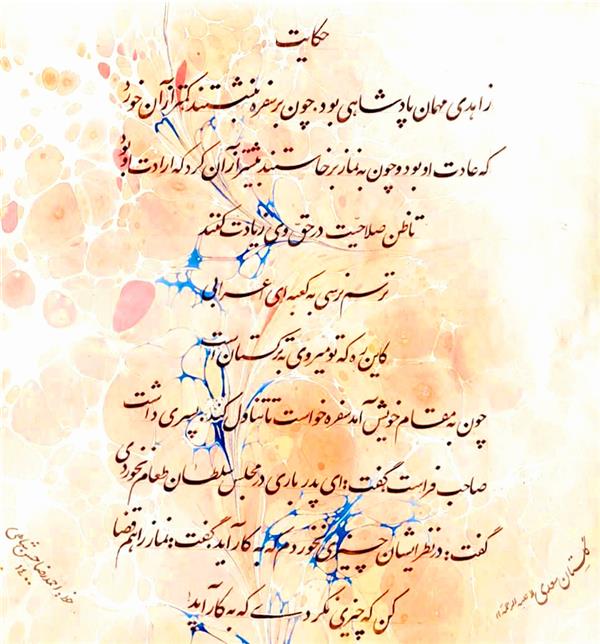 حکایت
زاهدی مهمان پادشاهی بود. چون بر سفره بنشستند کمتر از آن خورد
که عادت او بود و چون به نماز برخاستند بیشتر از آن کرد که ارادت او بود
تا ظن صلاحیت در حق وی زیادت کنند
ترسم نرسی به کعبه ای اعرابی
کاین ره که تو میروی به ترکستان است
چون به مقام خویش آمد سفره خواست تا تناول کند. پسری داشت
صاحب فراست گفت: ای پدر باری در مجلس سلطان طعام نخوردی
گفت: در نظر ایشان چیزی نخوردم که به کار آید گفت: نماز را هم قضا
کن که چیزی نکردی که به کار آید
گلستان سعدی
۱۴۰۰